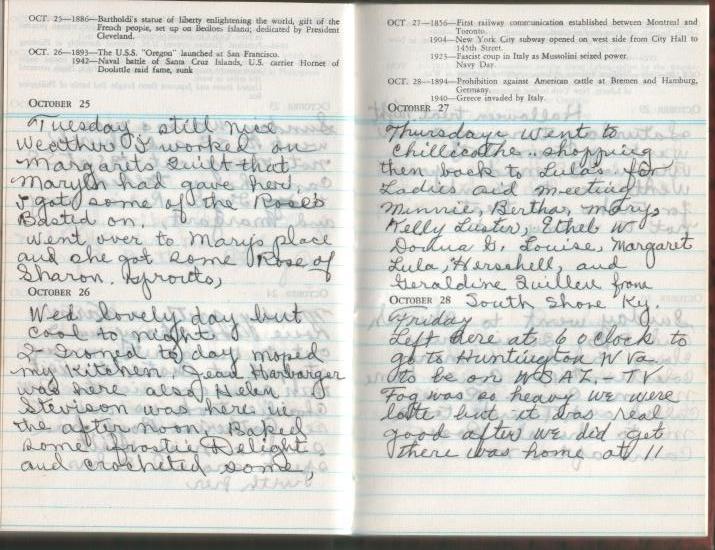 OCT. 25—1886—Bartholdi's statue of liberty enlightening the world, gift of the
French people, set up on Bedloes island; dedicated by President
Cleveland.
OCT. 26—1893—The U.S.S. "Oregon" launched at San Francisco.
1942—Naval battle of Santa Cruz Islands, U.S. carrier Hornet of
Doolittle raid fame, sunk
OCTOBER 25
Tuesday, still nice
Weather I worked on
Margarets Quilt that
Maryln had gave her,
I got some of the Roses
Basted on.
Went over to Marys place
and she got some Rose of
Sharon. Sprouts,
OCTOBER 26
Wed lovely day but
Cool to night
I Ironed to day moped
my Kitchen Jean Harbarger
was here also Helen
Stevison was here in
the after noon. Baked
some frostie Delight
and crocheted some,
OCT. 27—1856—First railway communication established between Montreal and
Toronto.
1904—New York City subway opened on west side from City Hall to
145th Street.
1923—Fascist coup in Italy as Mussolini seized power.
Navy Day.
OCT. 28—1894—Prohibition against American cattle at Bremen and Hamburg,
Germany.
1940—Greece invaded by Italy.
OCTOBER 27
Thursday: Went to
Chillicothe.. shopping
then back to Lula's for
Ladies aid meeting
Minnie, Bertha, Marys
Kelly Luster, Ethel W
Donna G. Louise, Margaret
Lula, Herschell, and
Geraldine Quillen from
OCTOBER 28 South Shore Ky.
Friday
Left here at 6 o clock to
go to Huntington W Va
to be on W S A Z, - TV
Fog was so heavy we were
late but it was real
good after we did get
there was home at 11